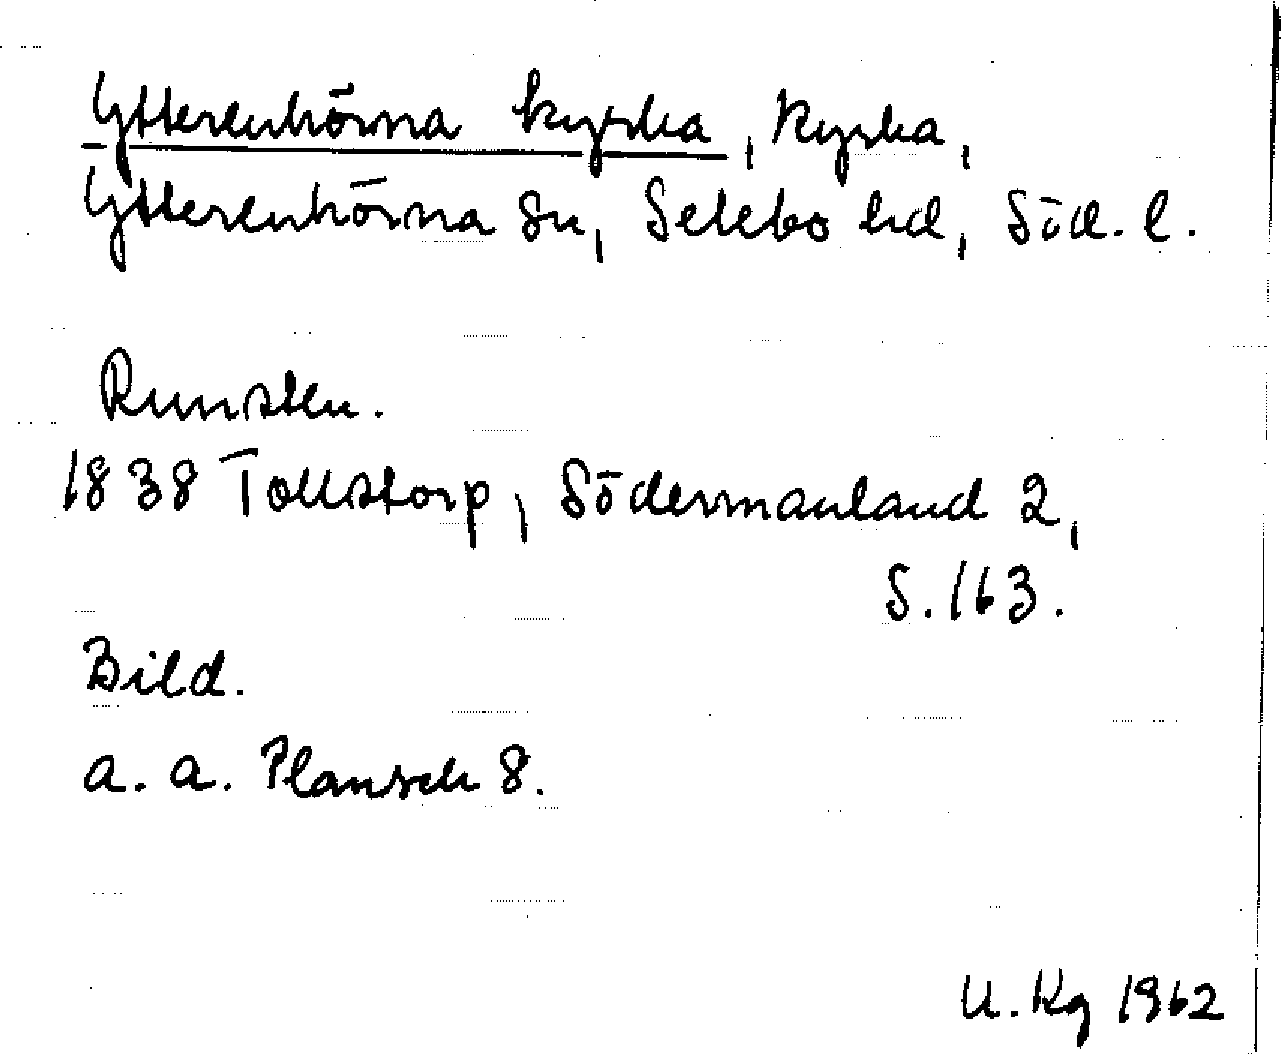 Ytterenhörna kyrka, Kyrka,
Ytterenhörna sn, Selebo hd, Söd. l.
Runsten.
1838 Tollstorp, Södermanland 2,
S. 163.
Bild.
a. a. Plansch 8.
U. Kg 1962